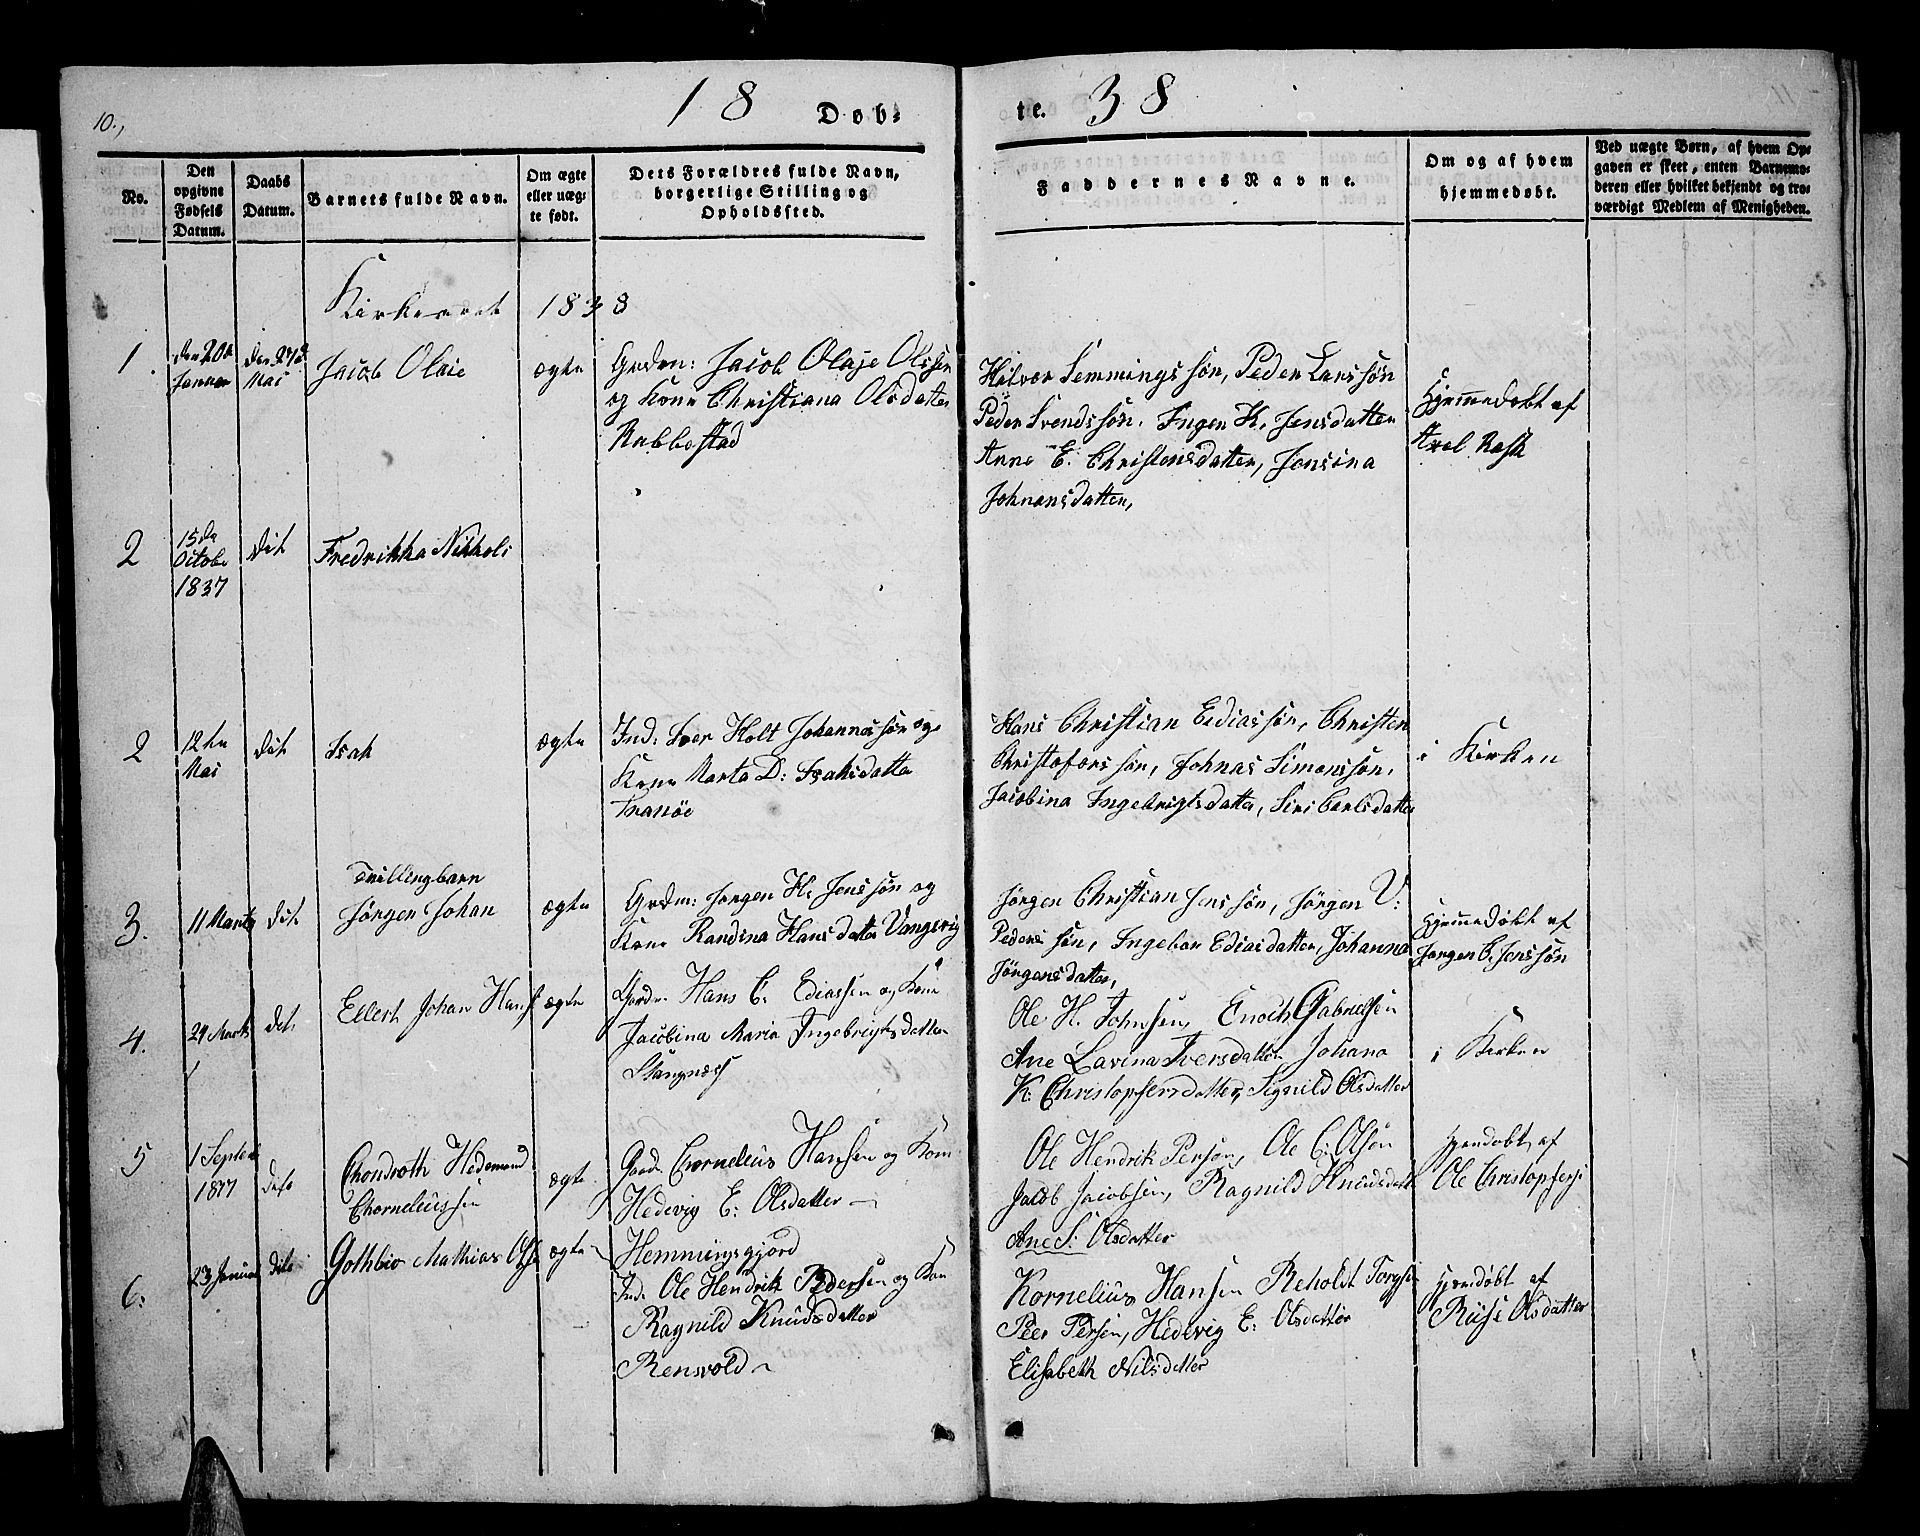 10.,
18 38
Døb-
te.
No.
Den
opgivne
Fødsels
Datum.
Daabs
Datum.
Barnets fulde Navn.
Om ægte
eller uæg-
te født.
Dets Forældres fulde Navn,
borgerlige Stilling og
Opholdssted.
Faddernes Navne.
Om og af hvem
hjemmedøbt.
Ved uægte Børn, af hvem Op-
gaven er skeet, enten Barnemo-
deren eller hvilket bekjendt og tro-
værdigt Medlem af Menigheden.
Kirkeaaret 1838
1.
den 20de
Januar
den 27de
Mai
Jacob Olaie
ægte
Grdm: Jacob Olaje Olssøn
og Kone Christiana Olsdatter
Rabbestad
Halvor Semmingssøn, Peder Larssøn
Peder Svendssøn, Inger K. Jensdatter
Anne E. Christensdatter, Jensina
Johnansdatter,
Hjemmedøbt af
Axel Rask
2
15de
Octobr
1837
dit
Fredrikka Nikkoli
2
12te
Mai
dit
Isak
ægte
Ind: Iver Holt Johannessøn og
Kone Marta D: Isaksdatter
Tranöe
Hans Christian Ediassøn, Christen
Christoferssøn, Johnas Simonssøn,
Jacobina Ingebrigtsdatter, Siri Carlsdatter
i Kirken
3.
11 Marts
dit
Tvillingbarn
Jørgen Johan
ægte
Grdm: Jørgen H. Jenssøn og
Kone Randina Hansdatter Vangsvig
Jørgen Christian Jenssøn, Jørgen V:
Pederssøn, Ingebor Ediasdatter, Johanna
Jörgensdatter,
Hjemmedøbt af
Jørgen C. Jenssøn
4.
24 Marts
dit
Ellert Johan Hans
ægte
Grd. Hans C. Ediassen og Kone
Jacobina Maria Ingebrigtsdatter
Stangnæss
Ole H. Johnsen, Enoch Gabrielsen
Ane Lavina Iversdatter Johana
K. Christopfersdatter, Signild Olsdatter
i Kirken
5
1 Septem
1837
dito
Chondroth Hedemand
Chorneliussen
ægte
Gard. Cornelius Hansen og Kone
Hedevig E: Olsdatter
Hemmingsgjord
Ole Hendrik Persøn, Ole C. Olsøn
Jacob Jacobsen, Ragnild Knudsdatter
Ane S: Olsdatter
Hjemdøbt af
Ole Christopfersen
6.
23 Januar
dito
Gothbio Mathias Olsen
ægte
Ind. Ole Hendrik Pedersen og Kone
Ragnild Knudsdatter
Rensvold
Kornelius Hansen Reholdt Torgsen
Peer Persen, Hedevig E: Olsdatter
Elisabeth Nilsdatter
Hjemdøbt af
Olsdatter